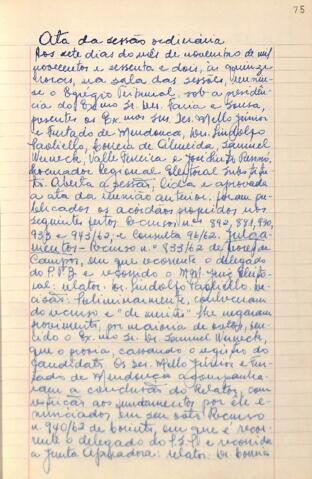 75
Ata da sessão ordinária
Aos sete dias do mês de novembro de mil
novecentos e sessenta e dois, às quinze
horas, na sala das sessões, reuniu-
se o Egrégio Tribunal, sob a presidên-
cia do Exmo Sr. Des. Faria e Sousa,
presentes os Exmos Srs. Des. Mello Júnior
e Furtado de Mendonça, Drs. Lindolfo
Paoliello, Correia de Almeida, Samuel
Werneck, Valle Ferreira e
Procurador Regional Eleitoral
Aberta a sessão, lida e aprovada
a ata da reunião anterior, foram pu-
blicados os acórdãos proferidos nos
seguintes feitos: Recursos n.os 892, 881, 930,
933 e 943/62; e Consulta 96/62. Julga-
mentos - Recurso n.o 833/62 de
Campos, em que recorrente o delegado
do P.T.B. e recorrido o MM. Juiz Eleito-
ral: relator: Dr. Lindolfo Paoliello. De-
cisão: Preliminarmente, conheceram
do recurso e "de meritis" lhe negaram
provimento, por maioria de votos, ven-
cido o Exmo Sr. Dr. Samuel Werneck,
que o provia, cassando o registro do
candidato. Os Srs. Mello Júnior e Fur-
tado de Mendonça acompanha-
ram a conclusão do Relator, com
restrição aos fundamentos por ele e-
nunciados em seu voto. Recurso
n.o 940/62 de em que é recor-
rente o delegado do P.S.P. e recorrida
a Junta Apuradora: relator: Dr. Correia